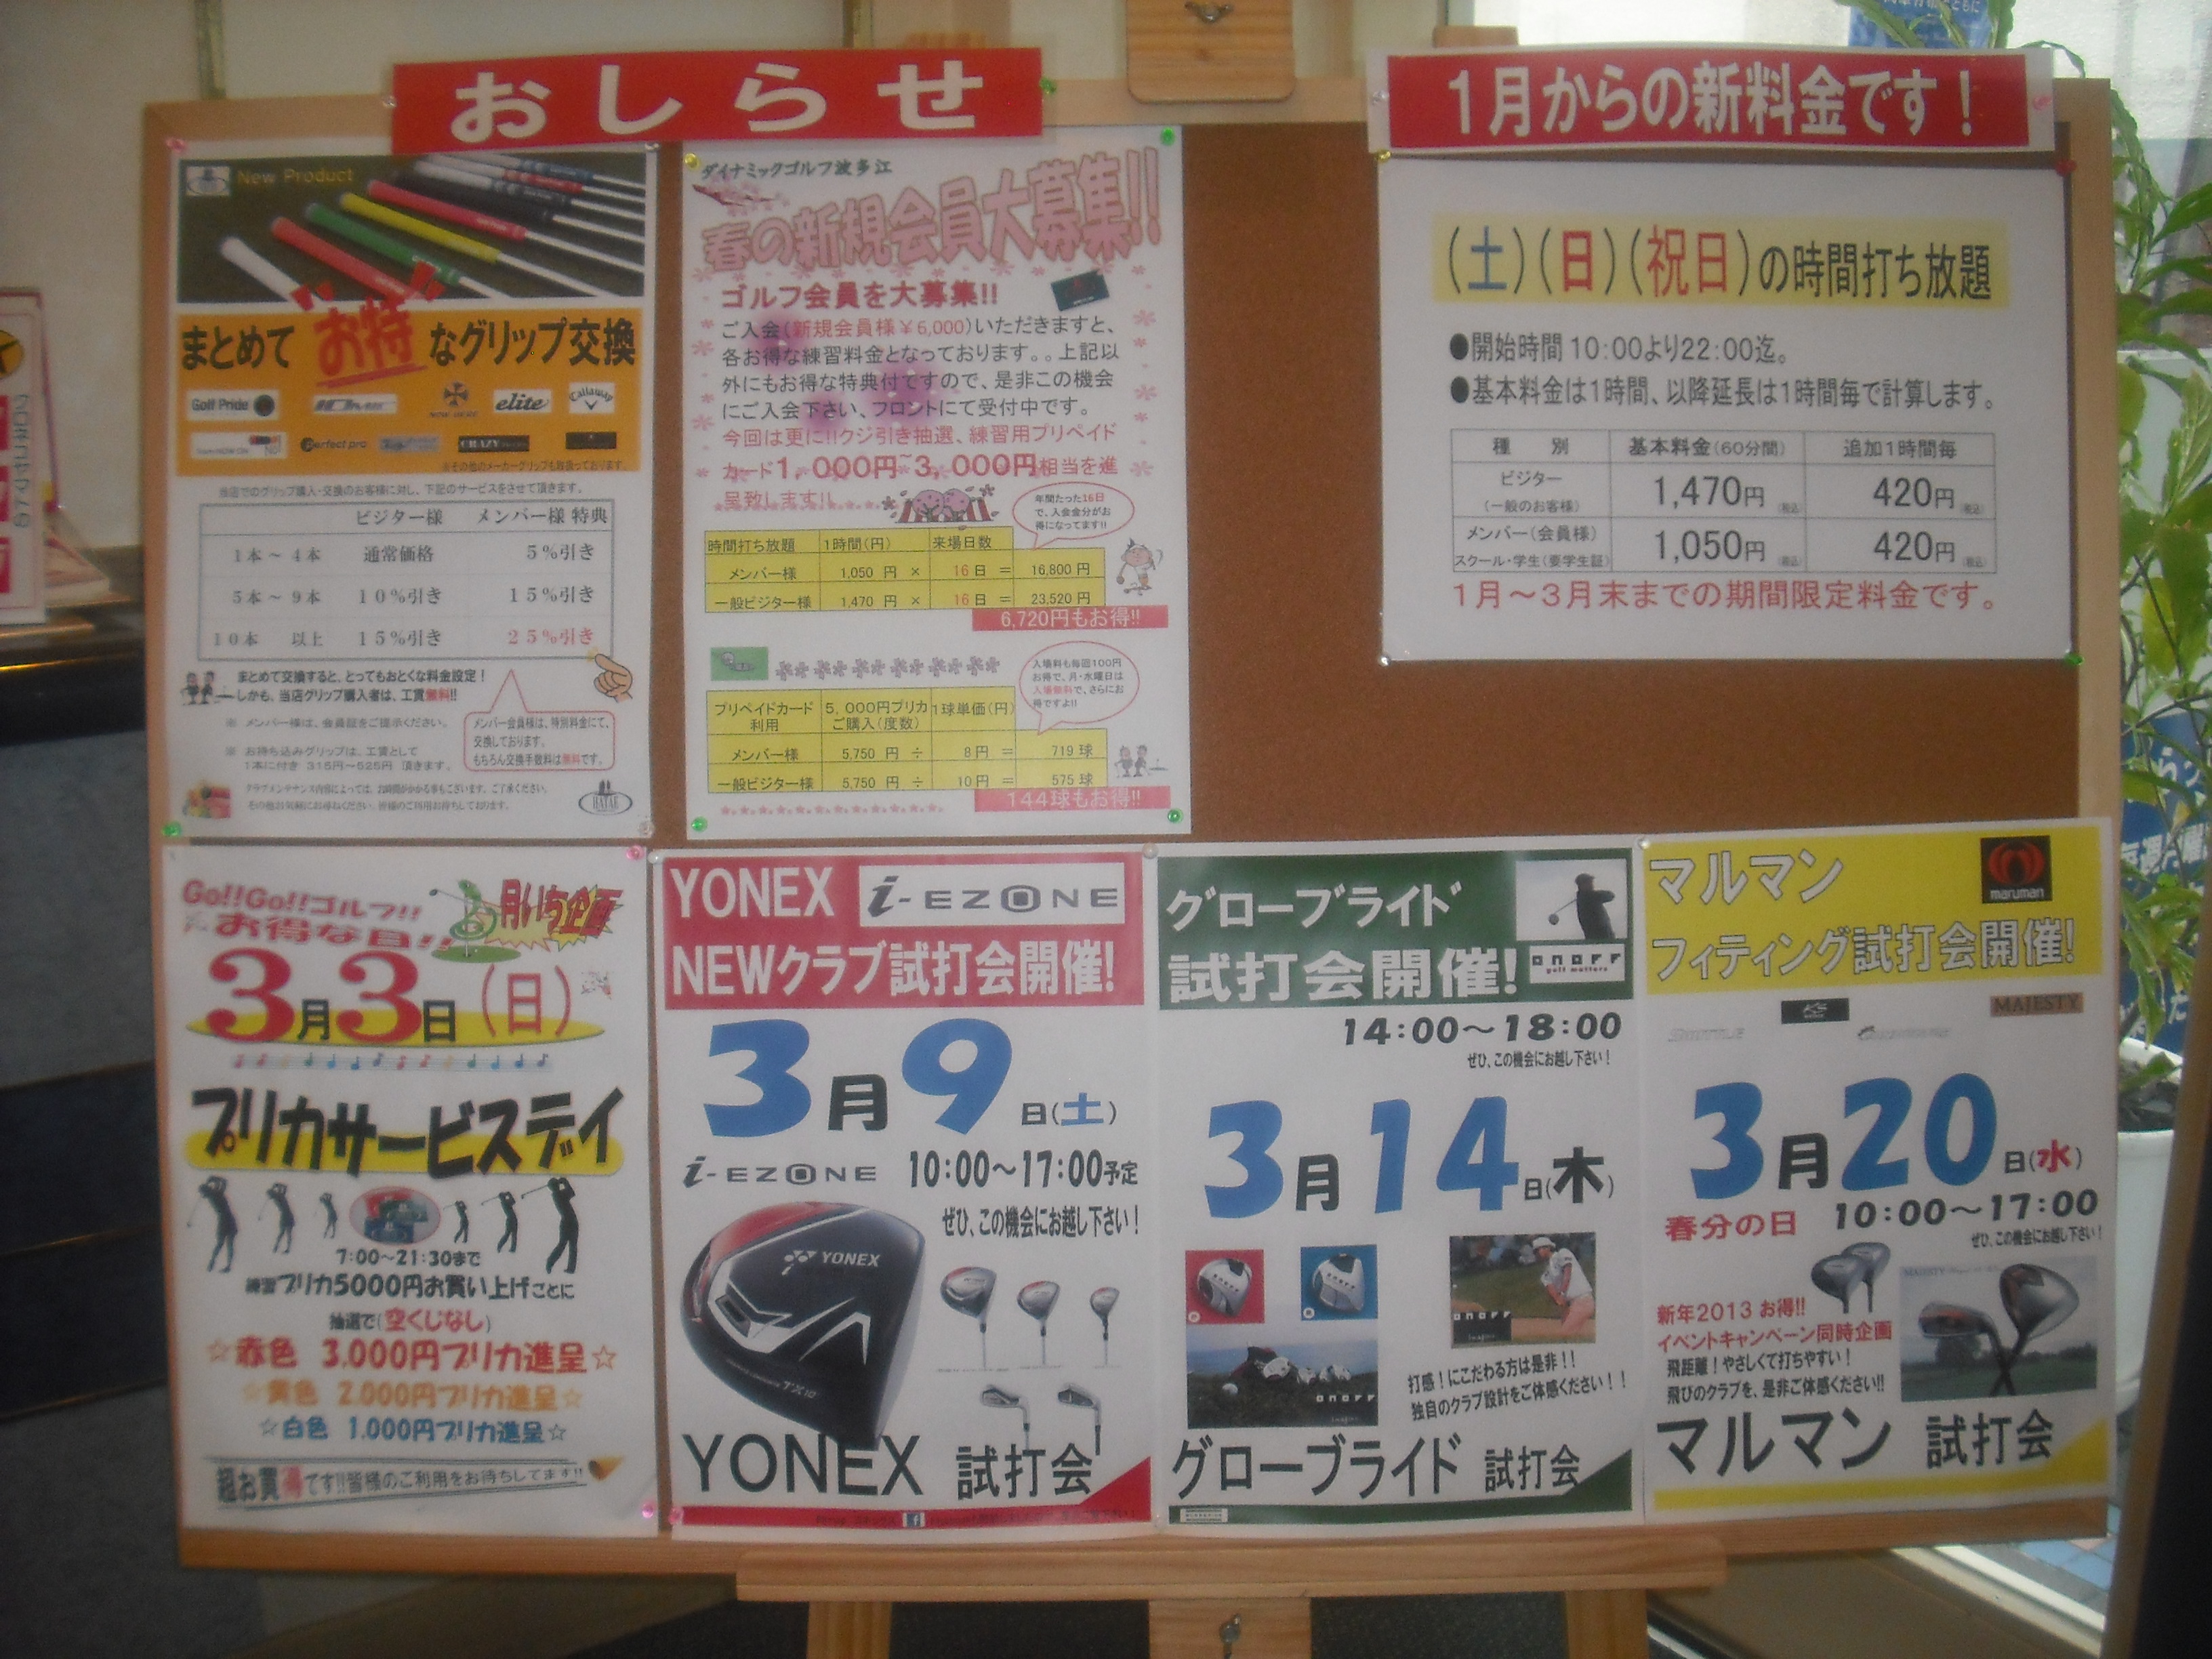 おしらせ
1月からの新料金です！
New Product
まとめて お得 なグリップ交換
Golf Pride
IOMIC
NOW HERE
elite
Callaway
perfect pro
CRAZY
※その他のメーカーグリップも取扱っております。
当店でのグリップ購入・交換のお客様に対し、下記のサービスをさせて頂きます。
ビジター様 メンバー様 特典
1本～4本 通常価格 5%引き
5本～9本 10%引き 15%引き
10本 以上 15%引き 25%引き
まとめて交換すると、とってもおとくな料金設定！
しかも、当店グリップ購入者は、工賃無料!!
※ メンバー様は、会員証をご提示ください。
※ お持ち込みグリップは、工賃として
1本に付き 315円～525円 頂きます。
メンバー会員様は、特別料金にて、
交換しております。
もちろん交換手数料は無料です。
クラブメンテナンス内容によっては、お時間がかかる事もございます。ご了承ください。
その他お気軽にお尋ねください。皆様のご利用お待ちしております。
HATAE
ダイナミックゴルフ波多江
春の新規会員大募集!!
ゴルフ会員を大募集!!
ご入会(新規会員様￥6,000)いただきますと、
各お得な練習料金となっております。。上記以
外にもお得な特典付ですので、是非この機会
にご入会下さい、フロントにて受付中です。
今回は更に!!クジ引き抽選、練習用プリペイド
カード1，000円~3，000円相当を進
呈致します!!
年間たった16日
で、入会金分がお
得になってます!!
時間打ち放題 1時間(円) 来場日数
メンバー様 1,050 円 × 16 日 ＝ 16,800 円
一般ビジター様 1,470 円 × 16 日 ＝ 23,520 円
6,720円もお得!!
入場料も毎回100円
お得で、月・水曜日は
入場無料で、さらにお
得ですよ!!
プリペイドカード利用 5，000円プリカご購入(度数) 1球単価(円)
メンバー様 5,750 円 ÷ 8 円 ＝ 719 球
一般ビジター様 5,750 円 ÷ 10 円 ＝ 575 球
144球もお得!!
(土)(日)(祝日)の時間打ち放題
●開始時間 10:00より22:00迄。
●基本料金は1時間、以降延長は1時間毎で計算します。
種 別 基本料金(60分間) 追加1時間毎
ビジター
(一般のお客様) 1,470円(税込) 420円(税込)
メンバー(会員様)
スクール・学生(要学生証) 1,050円(税込) 420円(税込)
1月～3月末までの期間限定料金です。
Go!!Go!!ゴルフ!!
お得な日!!
月いち企画
3月3日(日)
プリカサービスデイ
7:00～21:30まで
練習プリカ5000円お買い上げごとに
抽選で(空くじなし)
☆赤色 3,000円プリカ進呈☆
☆黄色 2,000円プリカ進呈☆
☆白色 1,000円プリカ進呈☆
超お買得です!!皆様のご利用をお待ちしてます!!
YONEX i-EZONE
NEWクラブ試打会開催!
3月9日(土)
i-EZONE 10:00～17:00予定
ぜひ、この機会にお越し下さい！
YONEX
YONEX 試打会
グローブライド
試打会開催!
onoff
golf matters
14:00～18:00
ぜひ、この機会にお越し下さい！
3月14日(木)
onoff
onoff
打感！にこだわる方は是非！！
独自のクラブ設計をご体感ください！！
グローブライド 試打会
マルマン
maruman
フィティング試打会開催!
SHUTTLE
MAJESTY
3月20日(水)
春分の日 10:00～17:00
ぜひ、この機会にお越し下さい！
新年2013 お得!!
イベントキャンペーン同時企画
飛距離！やさしくて打ちやすい！
飛びのクラブを、是非ご体感ください!!
MAJESTY
マルマン 試打会